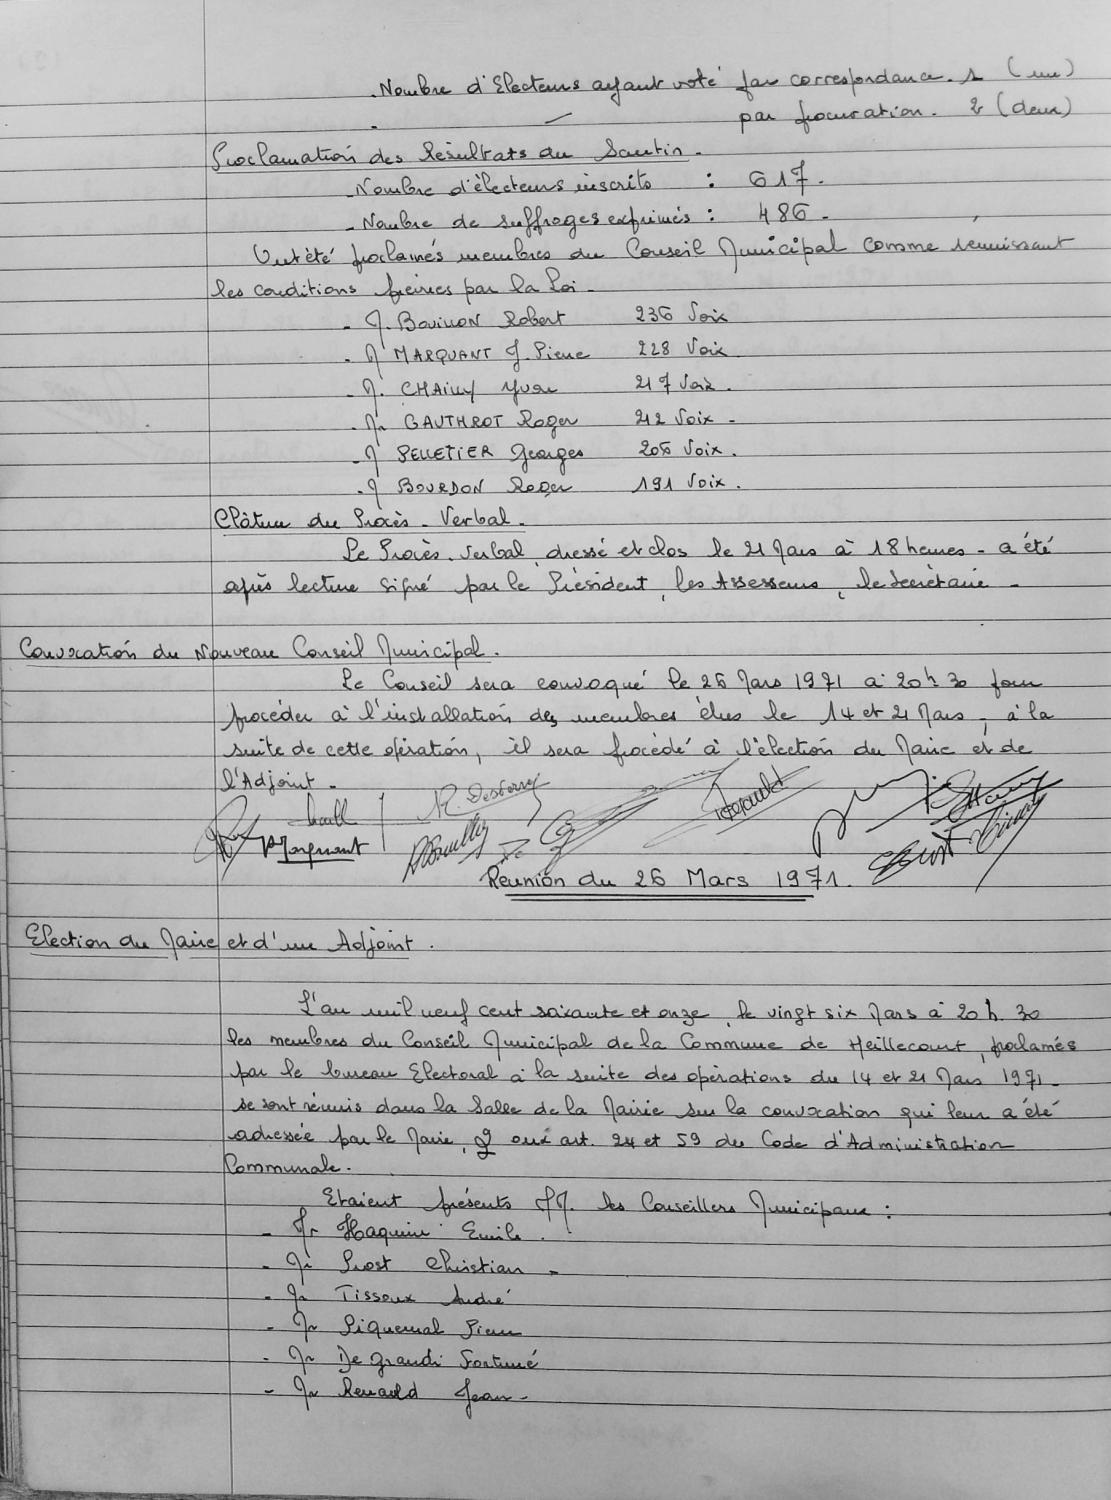 . Nombre d'Electeurs ayant voté par correspondance. 1 (un)
par procuration. 2 (deux)
Proclamation des Résultats du Scrutin.
- Nombre d'électeurs inscrits : 617.
- Nombre de suffrages exprimés : 486 -
Ont été proclamés membres du Conseil Municipal comme réunissant
les conditions prévues par la Loi -
- M. BOUILLON Robert 236 Voix
- M MARQUANT J. Pierre 228 Voix
- M. CHAILLY Yvon 217 Voix.
- Mr GAUTHROT Roger 212 Voix -
- M PELLETIER Georges 206 Voix.
- M BOURDON Roger 191 Voix.
Clôture du Procès-Verbal.
Le Procès-Verbal dressé et clos le 21 Mars à 18 heures - a été
après lecture signé par le Président, les Assesseurs, le Secrétaire -
Convocation du Nouveau Conseil Municipal.
Le Conseil sera convoqué le 26 Mars 1971 à 20h 30 pour
procéder à l'installation des membres élus le 14 et 21 Mars, à la
suite de cette opération, il sera procédé à l'élection du Maire et de
l'Adjoint -
Marquant
Réunion du 26 Mars 1971.
Election du Maire et d'un Adjoint.
L'an mil neuf cent soixante et onze, le vingt six Mars à 20 h. 30
les membres du Conseil Municipal de la Commune de Heillecourt, proclamés
par le bureau Electoral à la suite des opérations du 14 et 21 Mars 1971 -
se sont réunis dans la Salle de la Mairie sur la convocation qui leur a été
adressée par le Maire, aux art. 24 et 59 du Code d'Administration
Communale.
Etaient présents MM. les Conseillers Municipaux :
- Mr Haquin Emile.
- Mr Prost Christian -
- Mr Tissoux André
- Mr Piquemal Pierre
- Mr De Grandi Fortuné
- Mr Renauld Jean -